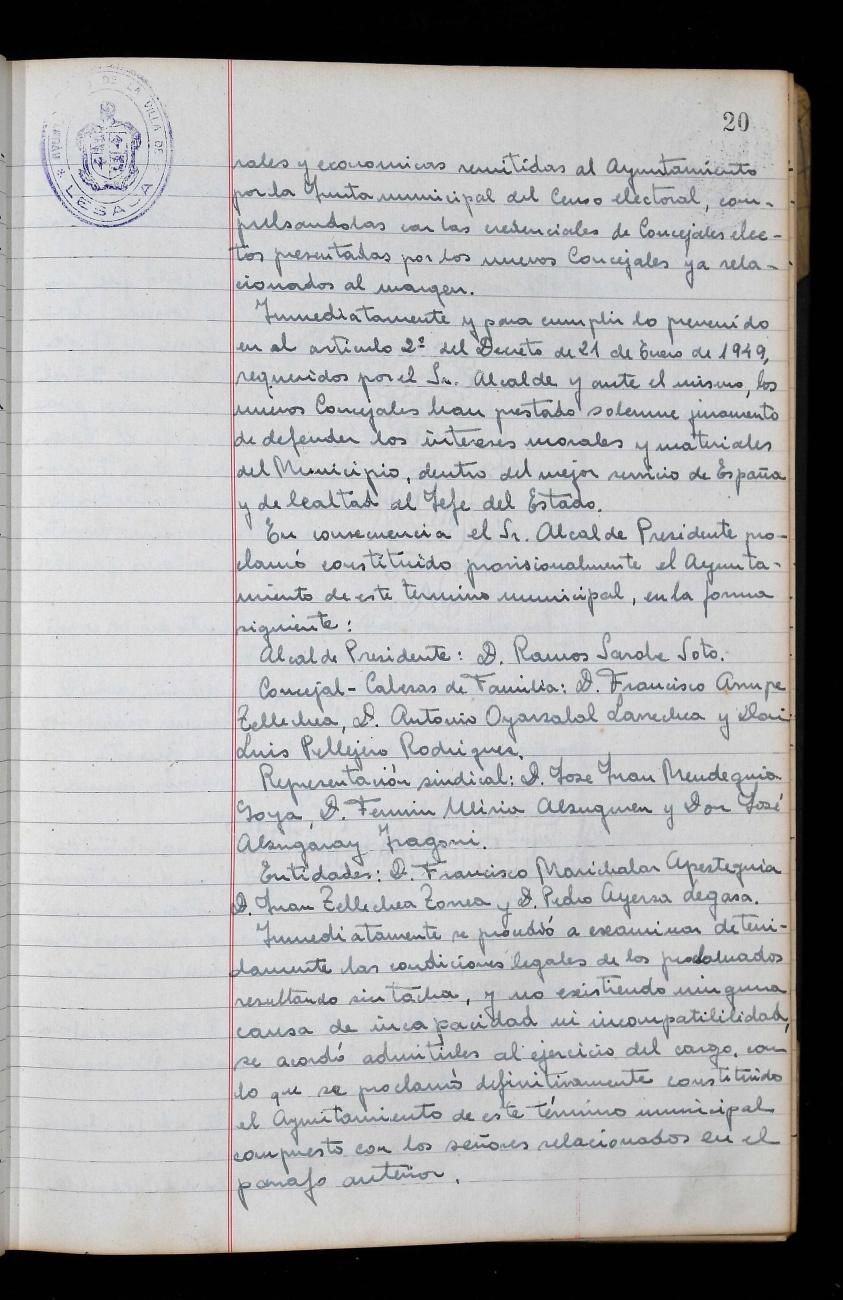 20
AYUNTAMIENTO DE LA VILLA DE
LESACA
rales y economicas remitidas al Ayuntamiento
por la Junta municipal del Censo electoral, com-
pulsandolas con las credenciales de Concejales elec-
tos presentadas por los nuevos Concejales ya rela-
cionados al margen.
Inmediatamente y para cumplir lo prevenido
en el articulo 2º del Decreto de 21 de Enero de 1949,
requeridos por el Sr. Alcalde y ante el mismo, los
nuevos Concejales han prestado solemne juramento
de defender los intereses morales y materiales
del Municipio, dentro del mejor servicio de España
y de lealtad al Jefe del Estado.
En consecuencia el Sr. Alcalde Presidente pro-
clamó constituido provisionalmente el Ayunta-
miento de este termino municipal, en la forma
siguiente:
Alcalde Presidente: D. Ramos Sarobe Soto.
Concejal-Cabezas de Familia: D. Francisco Arrupe
Tellechea, D. Antonio Oyarzabal Larrechea y Don
Luis Pellejero Rodriguez.
Representación sindical: D. Jose Juan Mendeguia
Goya, D. Fermin Miria Alzuguren y Don José
Alzugaray Iragorri.
Entidades: D. Francisco Marichalar Apesteguia
D. Juan Tellechea Zonea y D. Pedro Ayerza degasa.
Inmediatamente se procedió a examinar deteni-
damente las condiciones legales de los proclamados
resultando sin tacha, y no existiendo ninguna
causa de incapacidad ni incompatibilidad,
se acordó admitirles al ejercicio del cargo, con
lo que se proclamó definitivamente constituido
el Ayuntamiento de este término municipal
compuesto con los señores relacionados en el
parrafo anterior.